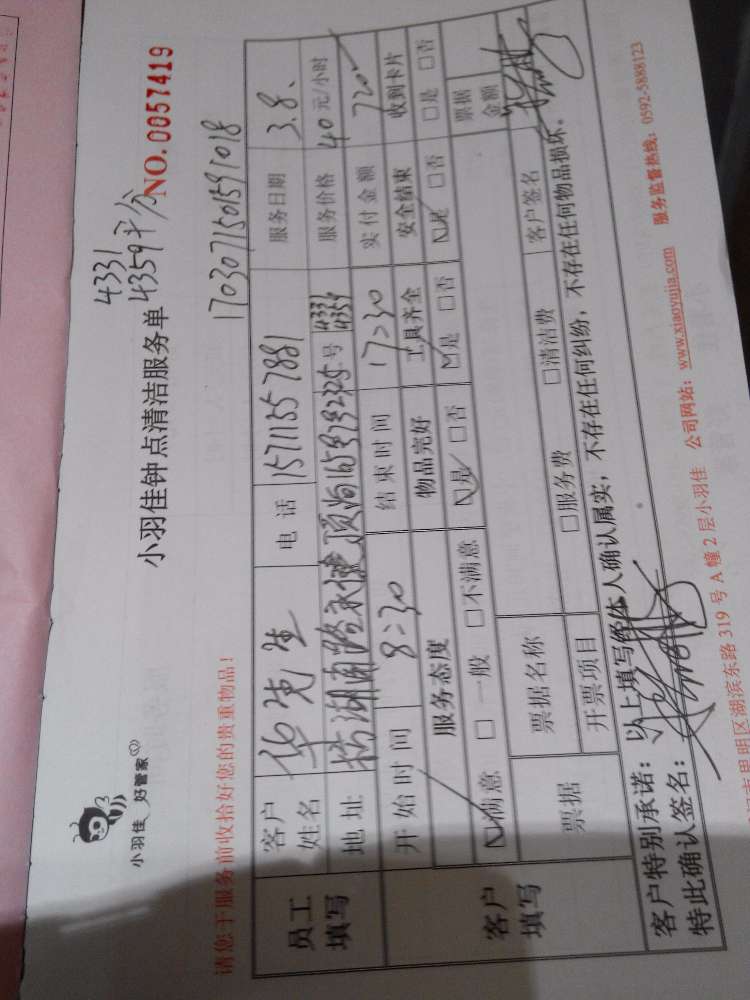 小羽佳 好管家
4331
4359平分
小羽佳钟点清洁服务单 NO. 0057419
请您于服务前收拾好您的贵重物品!
1703071501591018
员工填写
客户姓名 华先生 电话 15711557881 服务日期 3.8、
地址 号 4331 4359 服务价格 40元/小时
客户填写
开始时间 8:30 结束时间 17:30 实付金额 720
服务态度 物品完好 工具齐全 安全结束 收到卡片
☑满意 □一般 □不满意 ☑是 □否 ☑是 □否 ☑是 □否 □是 □否
票据 票据名称 □服务费 □清洁费 客户签名 票据金额
开票项目
客户特别承诺:以上填写皆本人确认属实,不存在任何纠纷,不存在任何物品损坏。
特此确认签名:
市思明区湖滨东路319号A幢2层小羽佳 公司网站:www.xiaoyujia.com 服务监督热线:0592-5888123